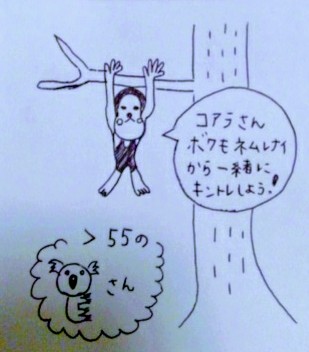 コアラさん
ボクもネムレナイ
から一緒に
キントレしよう!
> 55の
さん